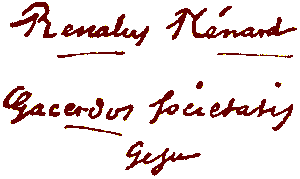 Renatus Ménard
Sacerdos societatis
Jesu